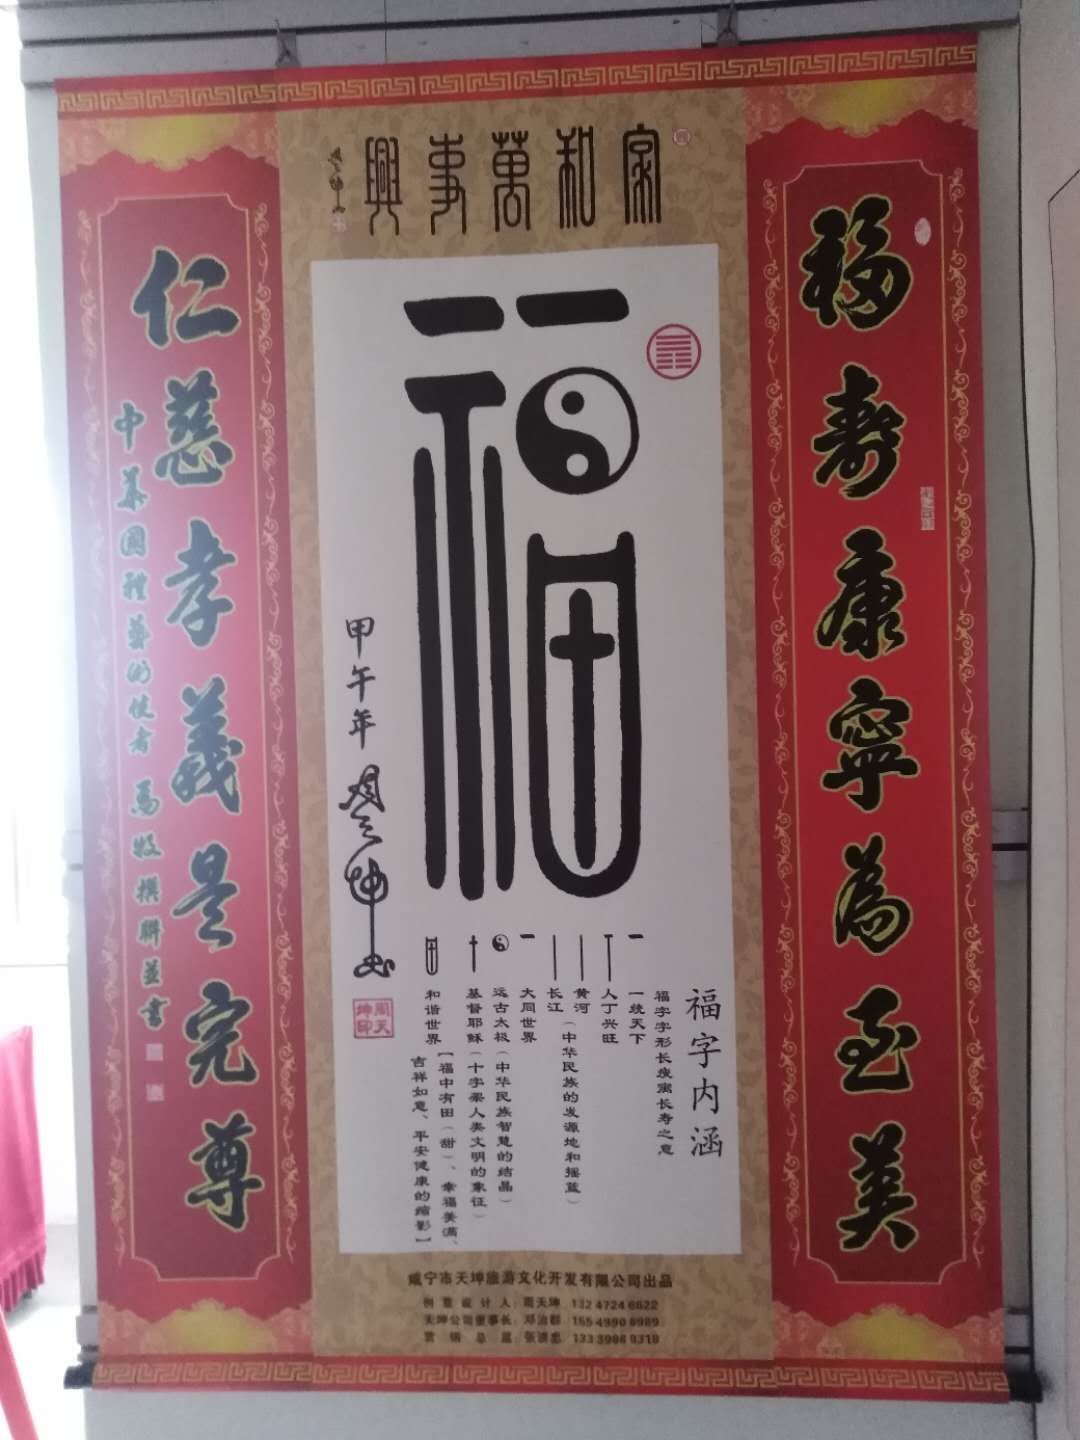 家和萬事興
福
福壽康寧為至美
仁慈孝義是完尊
中華國禮藝術使者 馬牧撰聯並書
甲午年 周天坤书
周天坤印
福字内涵
福字字形长瘦寓长寿之意
一统天下
人丁兴旺
黄河
长江
(中华民族的发源地和摇蓝)
大同世界
远古太极(中华民族智慧的结晶)
基督耶稣(十字架人类文明的象征)
和谐世界
【福中有田(甜)、幸福美满、
吉祥如意、平安健康的缩影】
咸宁市天坤旅游文化开发有限公司出品
创意设计人:周天坤 132 4724 6622
天坤公司董事长:邓治群
营销总监:张清忠